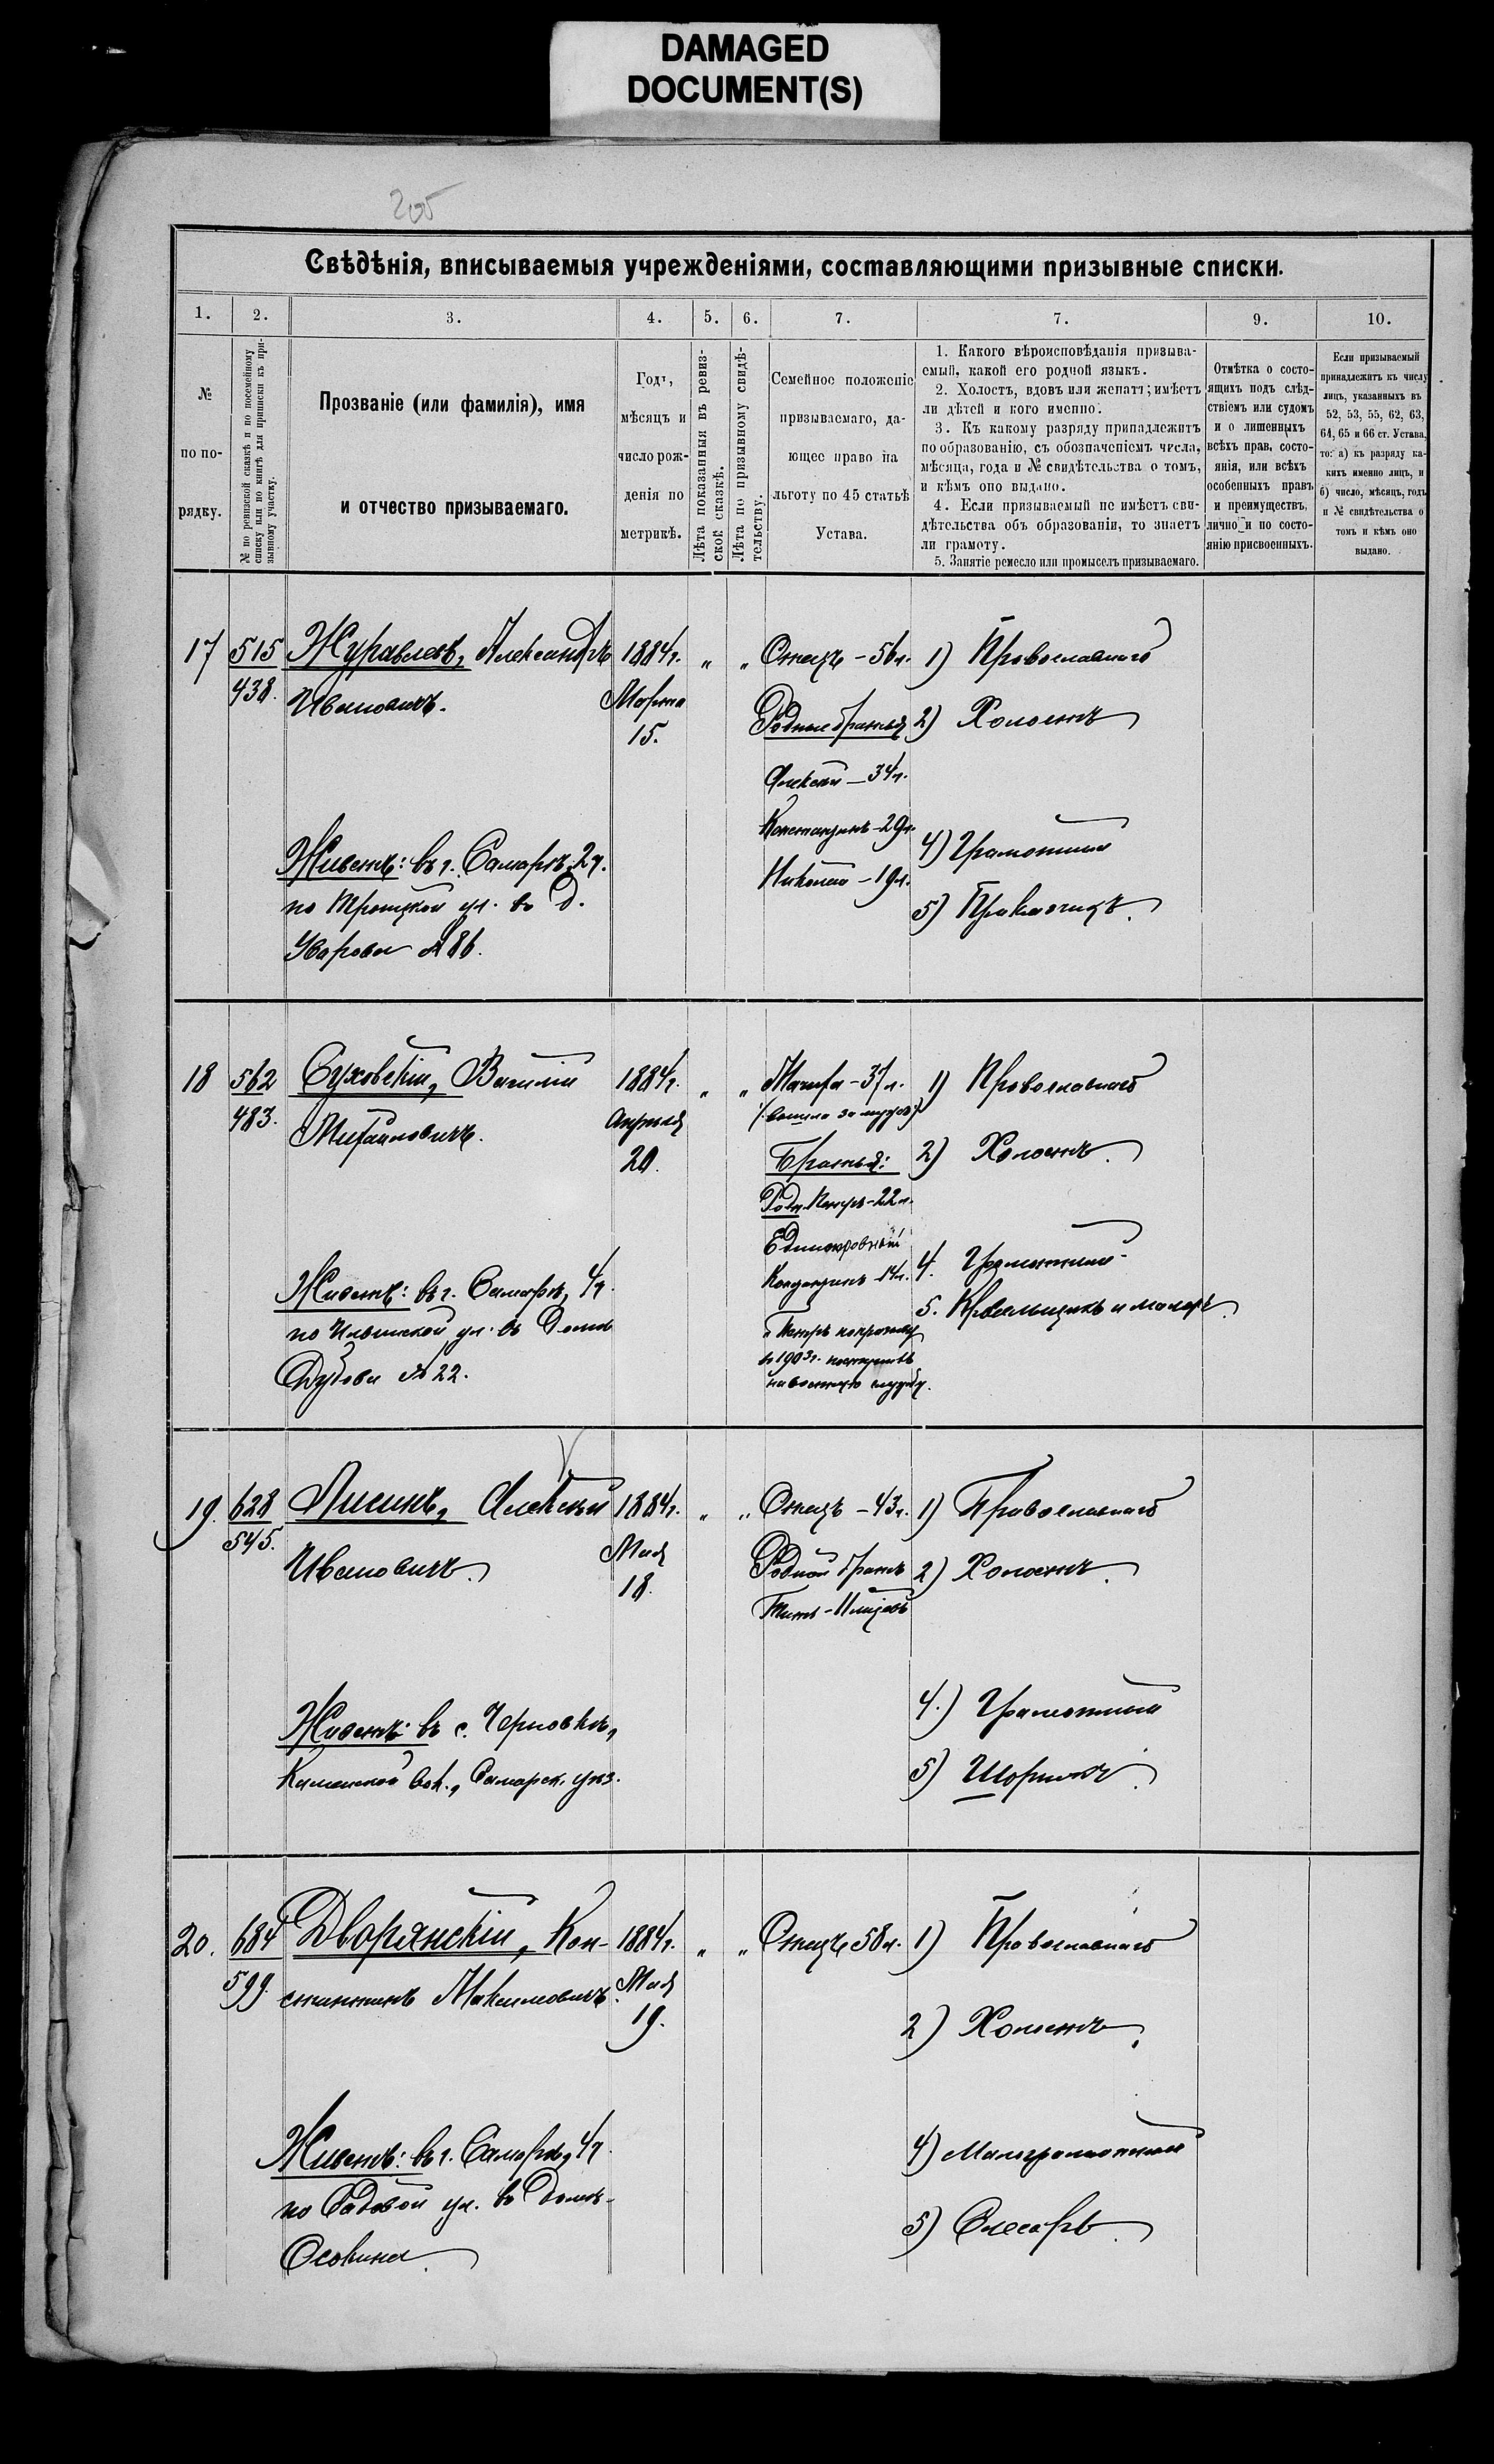 DAMAGED
DOCUMENT(S)
205
Свѣдѣнія, вписываемыя учрежденіями, составляющими призывные списки.
1. 2. 3. 4. 5. 6. 7. 7. 9. 10.
№
по по-
рядку.
№ по ревизской сказкѣ и по посемейному
списку или по книгѣ для приписки къ при-
зывному участку.
Прозваніе (или фамилія), имя
и отчество призываемаго.
Годъ,
мѣсяцъ и
число рож-
денія по
метрикѣ.
Лѣта показанныя въ ревиз-
ской сказкѣ.
Лѣта по призывному свидѣ-
тельству.
Семейное положеніе
призываемаго, да-
ющее право на
льготу по 45 статьѣ
Устава.
1. Какого вѣроисповѣданія призыва-
емый, какой его родной языкъ.
2. Холостъ, вдовъ или женатъ; имѣетъ
ли дѣтей и кого именно.
3. Къ какому разряду принадлежитъ
по образованію, съ обозначеніемъ числа,
мѣсяца, года и № свидѣтельства о томъ,
и кѣмъ оно выдано.
4. Если призываемый не имѣетъ сви-
дѣтельства объ образованіи, то знаетъ
ли грамоту.
5. Занятіе ремесло или промыселъ призываемаго.
Отмѣтка о состо-
ящихъ подъ слѣд-
ствіемъ или судомъ
и о лишенныхъ
всѣхъ прав, состо-
янія, или всѣхъ
особенныхъ правъ
и преимуществъ,
лично и по состо-
янію присвоенныхъ.
Если призываемый
принадлежитъ къ числу
лицъ, указанныхъ въ
52, 53, 55, 62, 63,
64, 65 и 66 ст. Устава,
то: а) къ разряду ка-
кихъ именно лицъ, и
б) число, мѣсяцъ, годъ
и № свидѣтельства о
томъ и кѣмъ оно
выдано.
17
515
438.
Журавлевъ, Александръ
Ивановичъ.
Живетъ: въ г. Самарѣ, 2 ч.
по Троицкой ул. въ д.
Уварова № 86.
1884 г.
Марта
15.
" "
Отецъ – 56 л.
Родные братья
Алексѣй – 34 л.
Константинъ – 29 л.
Николай – 19 л.
1) Православнаго
2) Холостъ
4) Грамотный
5) Прикащикъ.
18
562
483.
Суховскій, Василій
Михайловичъ.
Живетъ: въ г. Самарѣ, 4 ч.
по Ильинской ул. въ домѣ
Дудова № 22.
1884 г.
Апрѣля
20.
" "
37 л.
(вышла за мужъ)
Братья:
Родн. Петръ – 22 л.
Единокровный
14 л.
Петръ по призыву
въ 1903 г. поступилъ
на военную службу.
1) Православнаго
2) Холостъ.
4. Грамотный
5. Кровельщикъ и маляръ.
19.
628
545.
Лисинъ, Алексѣй
Ивановичъ.
Живетъ: въ с. Черновкѣ,
Каменской вол., Самарск. уѣз.
1884 г.
Мая
18.
" "
Отецъ – 43 л.
Родной братъ
1) Православнаго
2) Холостъ.
4.) Грамотный
5) Шорникъ.
20.
684
599
Дворянскій, Кон-
стантинъ Максимовичъ.
Живетъ: въ г. Самарѣ, 4 ч.
по Садовой ул. въ домѣ
Осокина.
1884 г.
Мая
19.
" "
Отецъ 58 л.
1) Православнаго
2) Холостъ.
4) Малограмотный
5) Слесарь.